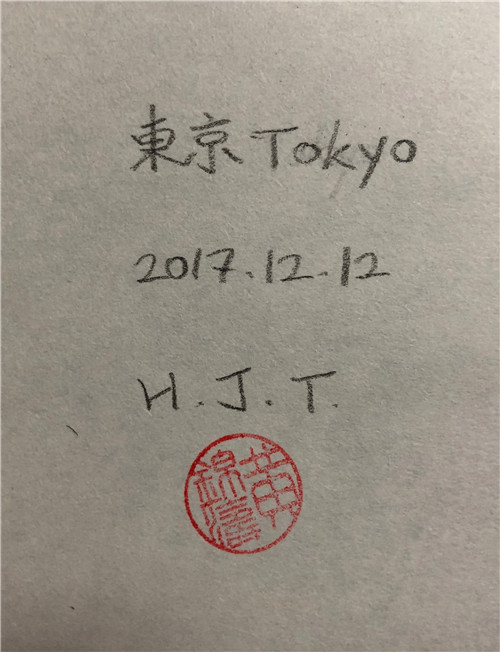 東京 Tokyo
2017.12.12
H.J.T.
黄錦